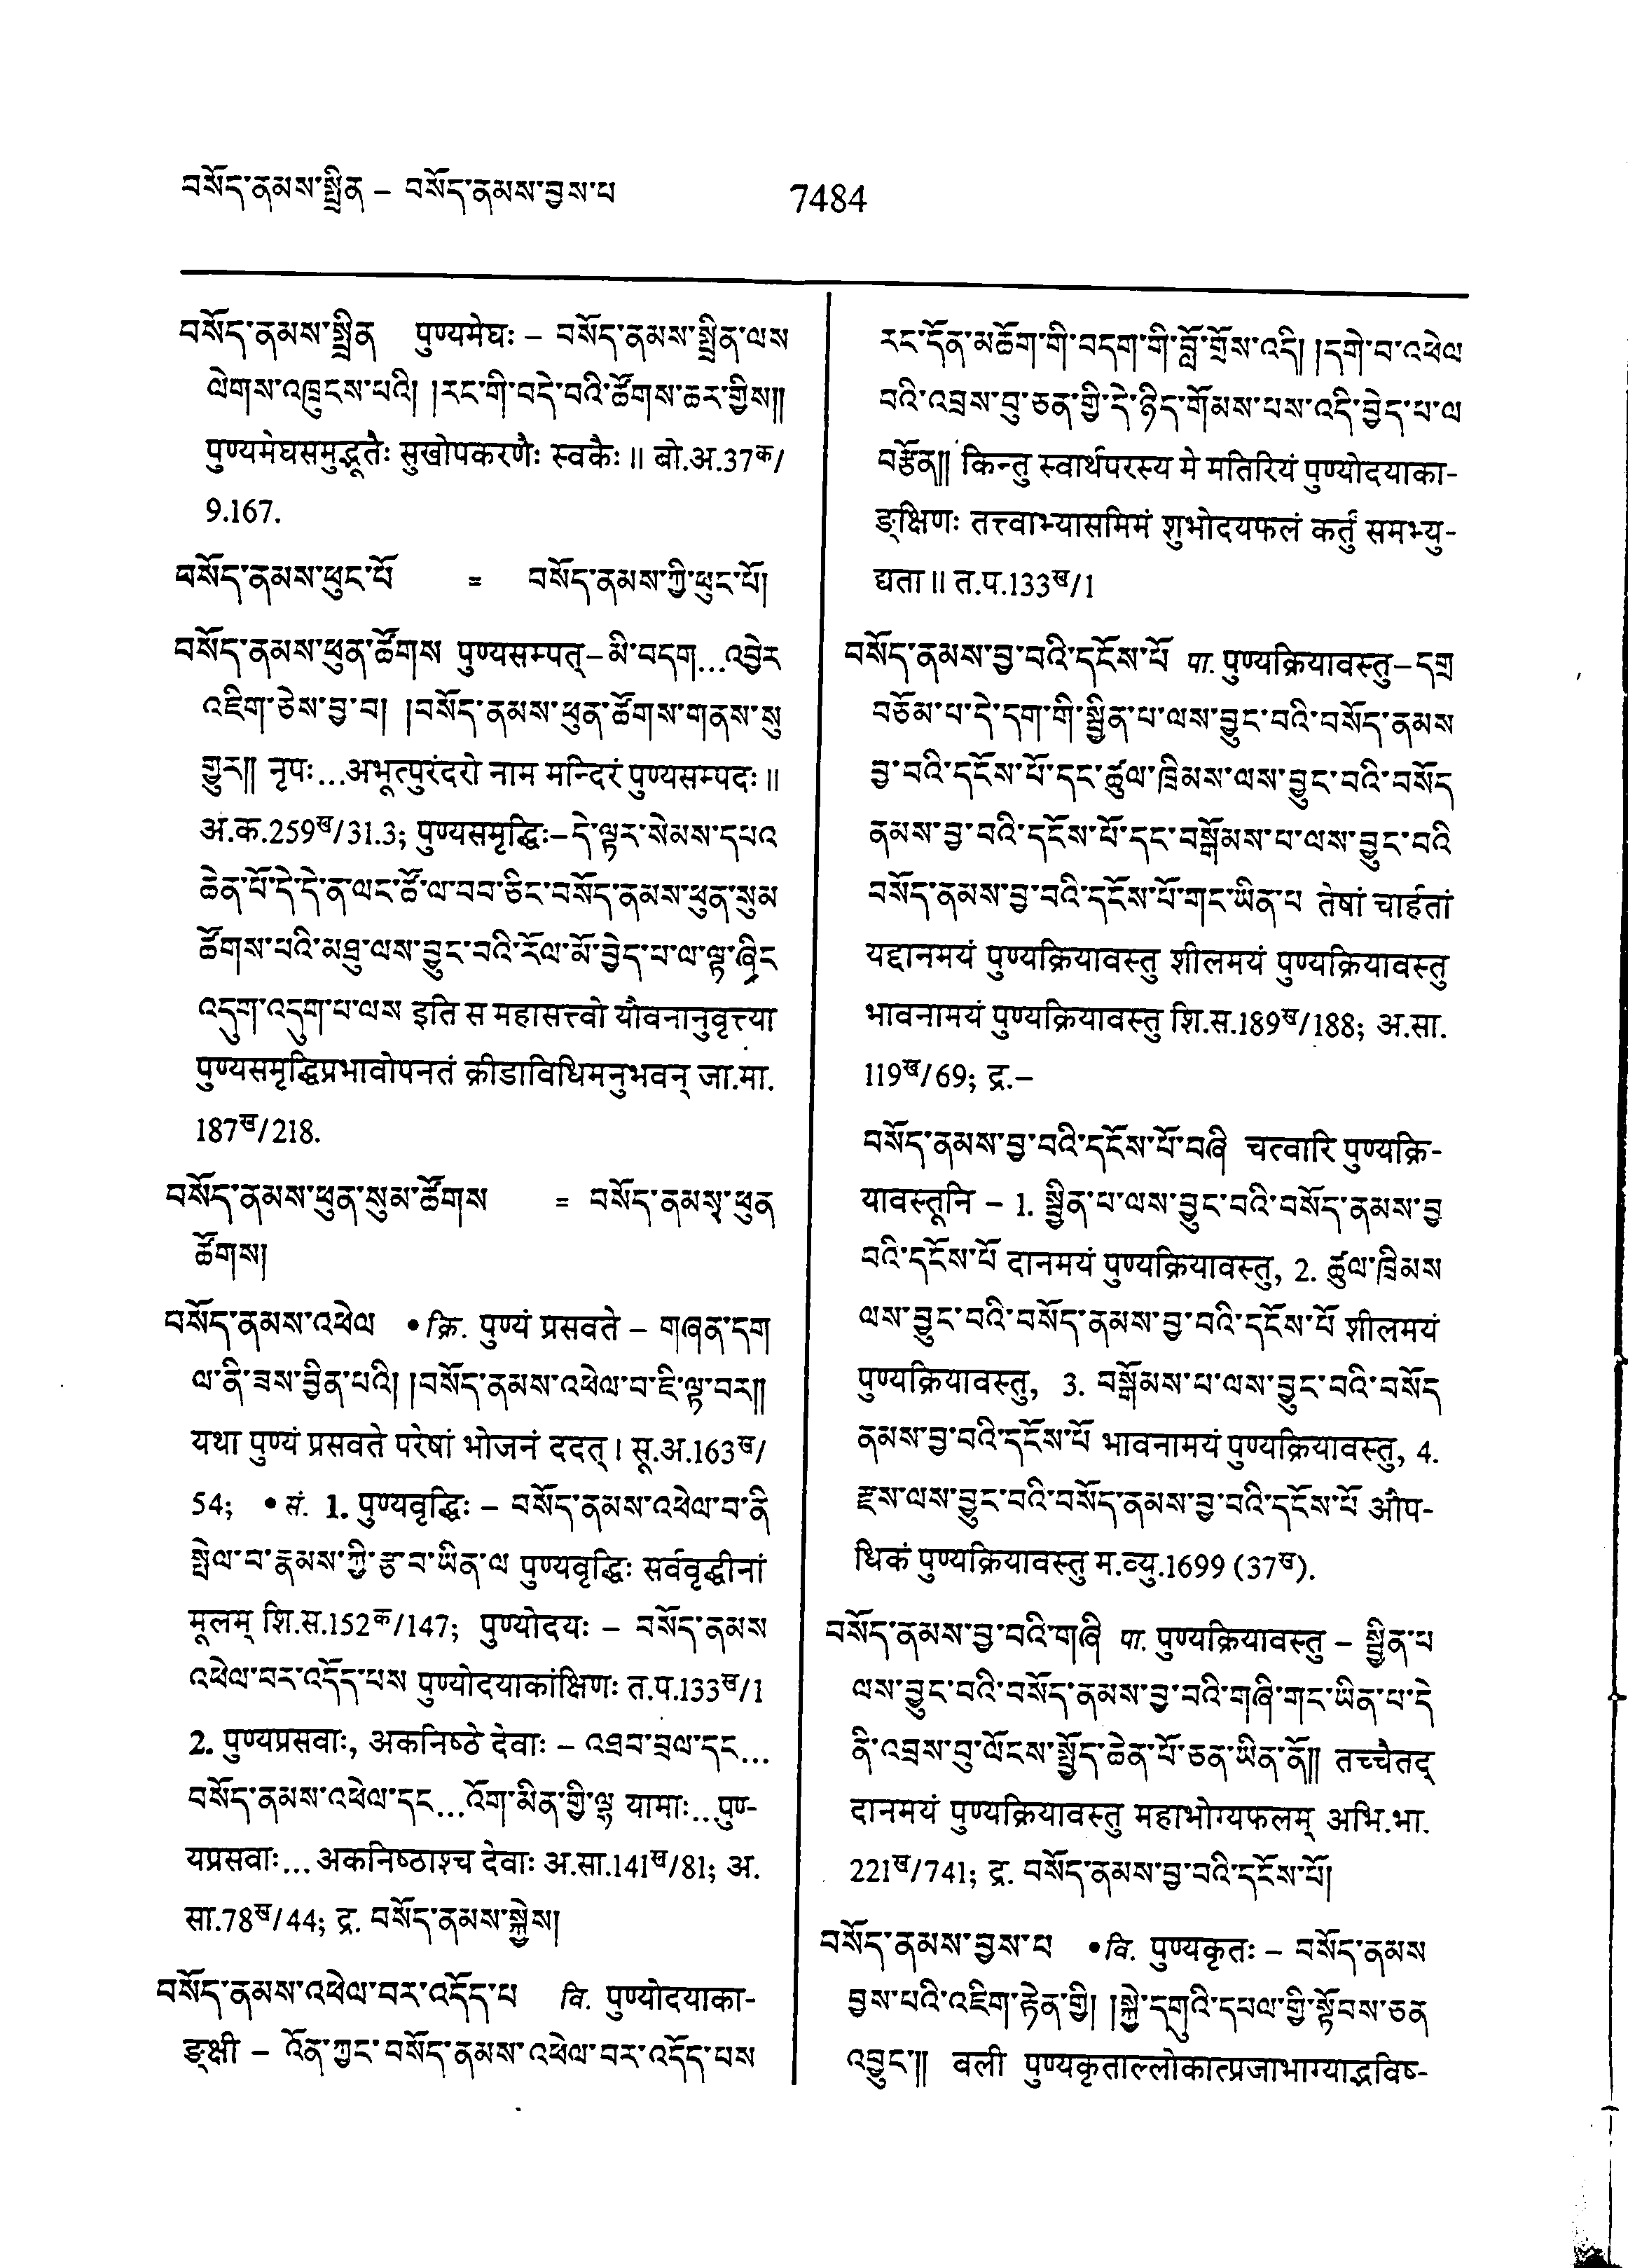 བསོད་ནམས་སྤྲིན – བསོད་ནམས་བྱས་པ
7484
བསོད་ནམས་སྤྲིན पुण्यमेघः – བསོད་ནམས་སྤྲིན་ལས
ལེགས་འཁྲུངས་པའི། །རང་གི་བདེ་བའི་ཚོགས་ཆར་གྱིས༎
पुण्यमेघसमुद्भूतैः सुखोपकरणैः स्वकैः ॥ बो.अ.37क/
9.167.
བསོད་ནམས་ཕུང་པོ = བསོད་ནམས་ཀྱི་ཕུང་པོ།
བསོད་ནམས་ཕུན་ཚོགས पुण्यसम्पत् – མི་བདག...འབྱེར
འཇིག་ཅེས་བྱ་བ། །བསོད་ནམས་ཕུན་ཚོགས་གནས་སུ
གྱུར༎ नृपः...अभूत्पुरंदरो नाम मन्दिरं पुण्यसम्पदः ॥
अ.क.259ख/31.3; पुण्यसमृद्धिः – དེ་ལྟར་སེམས་དཔའ
ཆེན་པོ་དེ་དེ་ན་ལང་ཚོ་ལ་བབ་ཅིང་བསོད་ནམས་ཕུན་སུམ
ཚོགས་པའི་མཐུ་ལས་བྱུང་བའི་རོལ་མོ་བྱེད་པ་ལ་ལྟ་ཞིང
འདུག་འདུག་པ་ལས इति स महासत्त्वो यौवनानुवृत्त्या
पुण्यसमृद्धिप्रभावोपनतं क्रीडाविधिमनुभवन् जा.मा.
187ख/218.
བསོད་ནམས་ཕུན་སུམ་ཚོགས = བསོད་ནམས་ཕུན
ཚོགས།
བསོད་ནམས་འཕེལ • क्रि. पुण्यं प्रसवते – གཞན་དག
ལ་ནི་ཟས་བྱིན་པའི། །བསོད་ནམས་འཕེལ་བ་ཇི་ལྟ་བར༎
यथा पुण्यं प्रसवते परेषां भोजनं ददत् । सू.अ.163ख/
54; • सं. 1. पुण्यवृद्धिः – བསོད་ནམས་འཕེལ་བ་ནི
སྤེལ་བ་རྣམས་ཀྱི་རྩ་བ་ཡིན་ལ पुण्यवृद्धिः सर्ववृद्धीनां
मूलम् शि.स.152क/147; पुण्योदयः – བསོད་ནམས
འཕེལ་བར་འདོད་པས पुण्योदयाकांक्षिणः त.प.133ख/1
2. पुण्यप्रसवाः, अकनिष्ठे देवाः – འཐབ་བྲལ་དང...
བསོད་ནམས་འཕེལ་དང...འོག་མིན་གྱི་ལྷ यामाः...पुण्-
यप्रसवाः... अकनिष्ठाश्च देवाः अ.सा.141ख/81; अ.
सा.78ख/44; द्र. བསོད་ནམས་སྐྱེས།
བསོད་ནམས་འཕེལ་བར་འདོད་པ वि. पुण्योदयाका-
ङ्क्षी – འོན་ཀྱང་བསོད་ནམས་འཕེལ་བར་འདོད་པས
རང་དོན་མཆོག་གི་བདག་གི་བློ་གྲོས་འདི། །དགེ་བ་འཕེལ
བའི་འབྲས་བུ་ཅན་གྱི་དེ་ཉིད་གོམས་པས་འདི་བྱེད་པ་ལ
བརྩོན༎ किन्तु स्वार्थपरस्य मे मतिरियं पुण्योदयाका-
ङ्क्षिणः तत्त्वाभ्यासमिमं शुभोदयफलं कर्तुं समभ्यु-
द्यता ॥ त.प.133ख/1
བསོད་ནམས་བྱ་བའི་དངོས་པོ पा. पुण्यक्रियावस्तु – དགྲ
བཅོམ་པ་དེ་དག་གི་སྦྱིན་པ་ལས་བྱུང་བའི་བསོད་ནམས
བྱ་བའི་དངོས་པོ་དང་ཚུལ་ཁྲིམས་ལས་བྱུང་བའི་བསོད
ནམས་བྱ་བའི་དངོས་པོ་དང་བསྒོམས་པ་ལས་བྱུང་བའི
བསོད་ནམས་བྱ་བའི་དངོས་པོ་གང་ཡིན་པ तेषां चार्हतां
यद्दानमयं पुण्यक्रियावस्तु शीलमयं पुण्यक्रियावस्तु
भावनामयं पुण्यक्रियावस्तु शि.स.189ख/188; अ.सा.
119ख/69; द्र.–
བསོད་ནམས་བྱ་བའི་དངོས་པོ་བཞི चत्वारि पुण्यक्रि-
यावस्तूनि – 1. སྦྱིན་པ་ལས་བྱུང་བའི་བསོད་ནམས་བྱ
བའི་དངོས་པོ दानमयं पुण्यक्रियावस्तु, 2. ཚུལ་ཁྲིམས
ལས་བྱུང་བའི་བསོད་ནམས་བྱ་བའི་དངོས་པོ शीलमयं
पुण्यक्रियावस्तु, 3. བསྒོམས་པ་ལས་བྱུང་བའི་བསོད
ནམས་བྱ་བའི་དངོས་པོ भावनामयं पुण्यक्रियावस्तु, 4.
རྫས་ལས་བྱུང་བའི་བསོད་ནམས་བྱ་བའི་དངོས་པོ औप-
धिकं पुण्यक्रियावस्तु म.व्यु.1699 (37ख).
བསོད་ནམས་བྱ་བའི་གཞི पा. पुण्यक्रियावस्तु – སྦྱིན་པ
ལས་བྱུང་བའི་བསོད་ནམས་བྱ་བའི་གཞི་གང་ཡིན་པ་དེ
ནི་འབྲས་བུ་ལོངས་སྤྱོད་ཆེན་པོ་ཅན་ཡིན་ནོ༎ तच्चैतद्
दानमयं पुण्यक्रियावस्तु महाभोग्यफलम् अभि.भा.
221ख/741; द्र. བསོད་ནམས་བྱ་བའི་དངོས་པོ།
བསོད་ནམས་བྱས་པ • वि. पुण्यकृतः – བསོད་ནམས
བྱས་པའི་འཇིག་རྟེན་གྱི། །སྐྱེ་དགུའི་དཔལ་གྱི་སྟོབས་ཅན
འབྱུང་༎ बली पुण्यकृताल्लोकात्प्रजाभाग्याद्भविष-